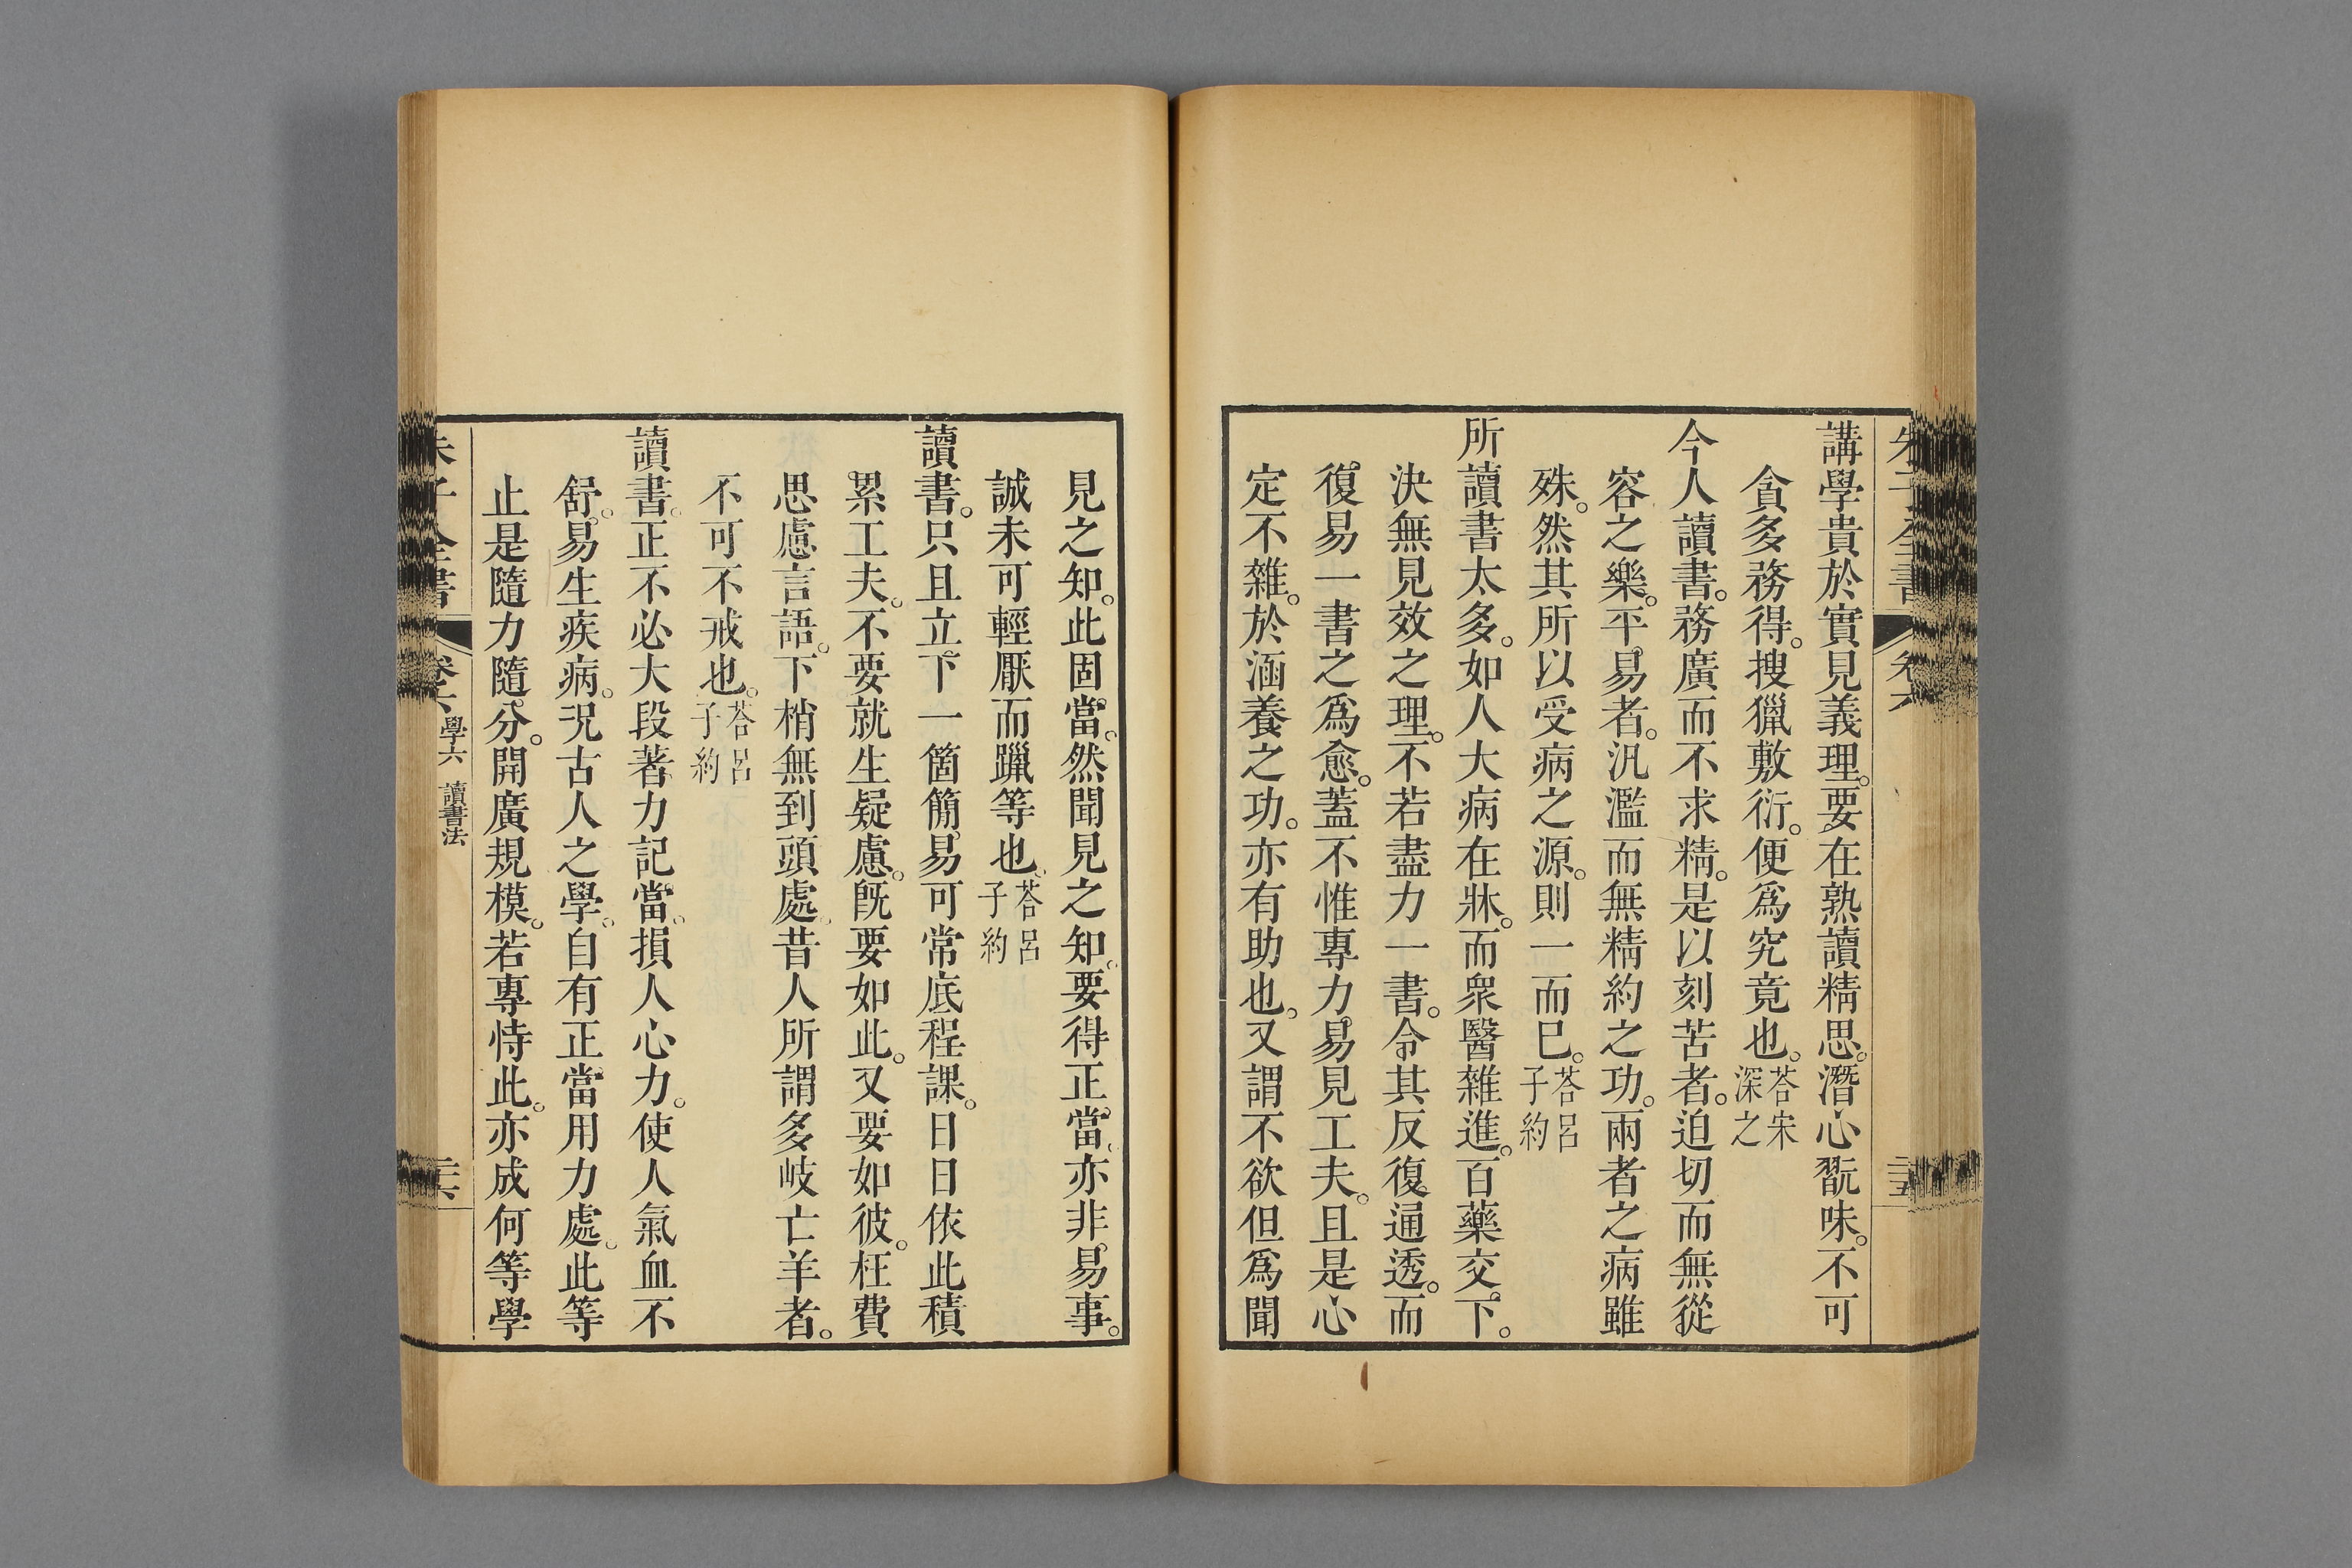 朱子全書 卷六 三五
講學貴於實見義理。要在熟讀精思。潛心翫味。不可
貪多務得。搜獵敷衍。便爲究竟也。荅宋深之
今人讀書。務廣而不求精。是以刻苦者。迫切而無從
容之樂。平易者。汎濫而無精約之功。兩者之病雖
殊。然其所以受病之源。則一而巳。荅呂子約
所讀書太多。如人大病在牀。而衆醫雜進。百藥交下。
決無見效之理。不若盡力一書。令其反復通透。而
復易一書之爲愈。蓋不惟專力易見工夫。且是心
定不雜。於涵養之功。亦有助也。又謂不欲但爲聞
見之知。此固當。然聞見之知。要得正當。亦非易事。
誠未可輕厭而躐等也。荅呂子約
讀書。只且立下一箇簡易可常底程課。日日依此積
累工夫。不要就生疑慮。旣要如此。又要如彼。枉費
思慮言語。下梢無到頭處。昔人所謂多岐亡羊者。
不可不戒也。荅呂子約
讀書。正不必大段著力記當。損人心力。使人氣血不
舒。易生疾病。況古人之學。自有正當用力處。此等
止是隨力隨分。開廣規模。若專恃此。亦成何等學
朱子全書 卷六 學六 讀書法 三六